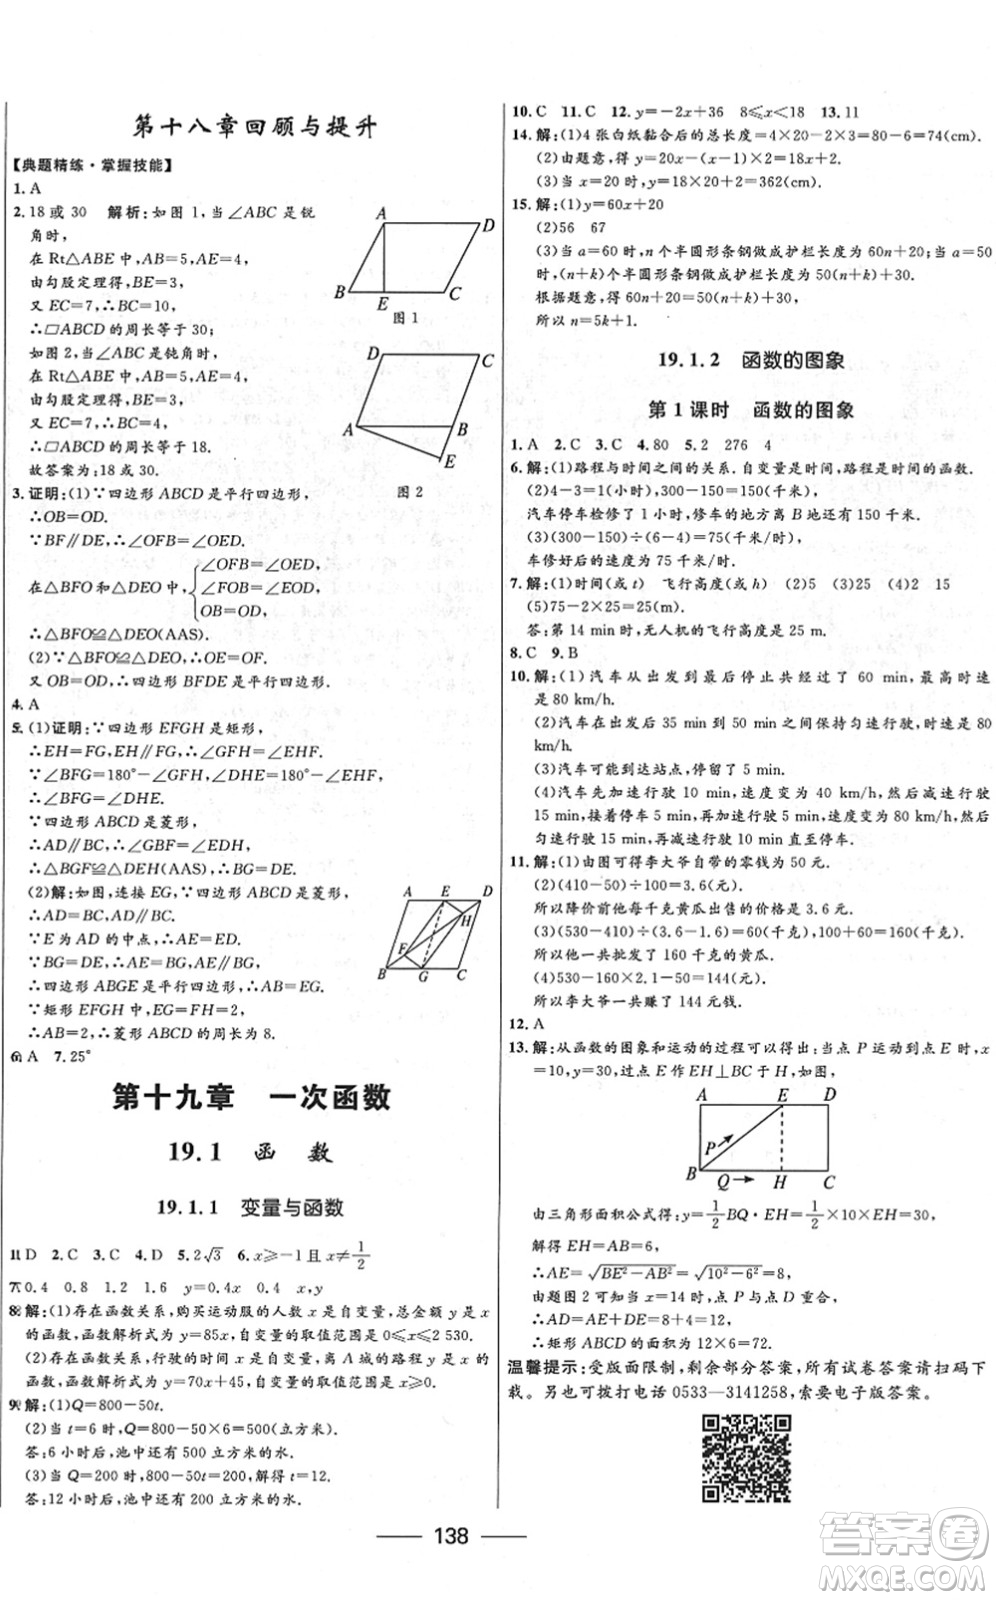 第十八章回顾与提升
【典题精练·掌握技能】
1. A
2. 18或30 解析:如图1,当∠ABC是锐
角时,
在Rt△ABE中,AB=5,AE=4,
由勾股定理得,BE=3,
又EC=7,∴BC=10,
∴□ABCD的周长等于30;
如图2,当∠ABC是钝角时,
在Rt△ABE中,AB=5,AE=4,
由勾股定理得,BE=3,
又EC=7,∴BC=4,
∴□ABCD的周长等于18.
故答案为:18或30.
A D B E C
图1
D C A B E
图2
3. 证明:(1)∵四边形ABCD是平行四边形,
∴OB=OD.
∵BF∥DE,∴∠OFB=∠OED.
在△BFO和△DEO中,{∠OFB=∠OED, ∠FOB=∠EOD, OB=OD,
∴△BFO≌△DEO(AAS).
(2)∵△BFO≌△DEO,∴OE=OF.
又OB=OD,∴四边形BFDE是平行四边形.
4. A
5. (1)证明:∵四边形EFGH是矩形,
∴EH=FG,EH∥FG,∴∠GFH=∠EHF.
∵∠BFG=180°-∠GFH,∠DHE=180°-∠EHF,
∴∠BFG=∠DHE.
∵四边形ABCD是菱形,
∴AD∥BC,∴∠GBF=∠EDH,
∴△BGF≌△DEH(AAS).∴BG=DE.
(2)解:如图,连接EG,∵四边形ABCD是菱形,
∴AD=BC,AD∥BC.
∵E为AD的中点,∴AE=DE.
∵BG=DE,∴AE=BG,
∴四边形ABGE是平行四边形,
∴AB=EG.
∵矩形EFGH中,EG=FH=2,
∴AB=2,∴菱形ABCD的周长为8.
A E D H F B G C
6. A 7. 25°
第十九章 一次函数
19.1 函 数
19.1.1 变量与函数
1. D 2. C 3. C 4. D 5. 2√3 6. x≥-1且x≠1/2
7. 0.4 0.8 1.2 1.6 y=0.4x 0.4 x,y
8. 解:(1)存在函数关系,购买运动服的人数x是自变量,总金额y是x
的函数,函数解析式为y=85x,自变量的取值范围是0≤x≤2 530.
(2)存在函数关系,行驶的时间x是自变量,离A城的路程y是x的
函数,函数解析式为y=70x+45,自变量的取值范围是x≥0.
9. 解:(1)Q=800-50t.
(2)当t=6时,Q=800-50×6=500(立方米).
答:6小时后,池中还有500立方米的水.
(3)当Q=200时,800-50t=200,解得t=12.
答:12小时后,池中还有200立方米的水.
10. C 11. C 12. y=-2x+36 8≤x<18 13. 11
14. 解:(1)4张白纸黏合后的总长度=4×20-2×3=80-6=74(cm).
(2)由题意,得y=20x-(x-1)×2=18x+2.
(3)当x=20时,y=18x+2=362(cm).
15. 解:(1)y=60x+20
(2)56 67
(3)当a=60时,n个半圆形条钢做成护栏总长度为60n+20;当a=50
时,(n+k)个半圆形条钢做成护栏总长度为50(n+k)+30.
根据题意,得60n+20=50(n+k)+30.
所以n=5k+1.
19.1.2 函数的图象
第1课时 函数的图象
1. A 2. C 3. C 4. 80 5. 2 276 4
6. 解:(1)路程与时间之间的关系.自变量是时间,路程是时间的函数.
(2)4-3=1(小时),300-150=150(千米),
汽车停车检修了1小时,修车的地方离B地还有150千米.
(3)(300-150)÷(6-4)=75(千米/时),
车修好后的速度为75千米/时.
7. 解:(1)时间(或t) 飞行高度(或h) (2)5 (3)25 (4)2 15
(5)75-2×25=25(m).
答:第14 min时,无人机的飞行高度是25 m.
8. C 9. B
10. 解:(1)汽车从出发到最后停止共经过了60 min,最高时速
是80 km/h.
(2)汽车在出发后35 min到50 min之间保持匀速行驶,时速是80
km/h.
(3)汽车可能到达站点,停留了5 min.
(4)汽车先加速行驶10 min,速度为40 km/h,然后减速行驶
15 min,接着停车5 min,再加速行驶5 min,速度为80 km/h,然后
匀速行驶15 min,再减速行驶10 min直至停车.
11. 解:(1)由图可得李大爷自带的零钱为50元.
(2)(410-50)÷100=3.6(元).
所以降价前他每千克黄瓜出售的价格是3.6元.
(3)(530-410)÷(3.6-1.6)=60(千克),100+60=160(千克).
所以他一共批发了160千克的黄瓜.
(4)530-160×2.1-50=144(元).
所以李大爷一共赚了144元钱.
12. A
13. 解:从函数的图象和运动的过程可以得出:当点P运动到点E时,x
=10,y=30,过点E作EH⊥BC于H,如图,
A E D P B Q H C
由三角形面积公式得:y=1/2BQ·EH=1/2×10×EH=30,
解得EH=AB=6,
∴AE=√BE²-AB²=√10²-6²=8,
由题图2可知当x=14时,点P与点D重合,
∴AD=AE+DE=8+4=12,
∴矩形ABCD的面积为12×6=72.
温馨提示:受版面限制,剩余部分答案,所有试卷答案请扫码下
载。另也可拨打电话0533—3141258,索要电子版答案。
138
答案圈
MXQE.COM